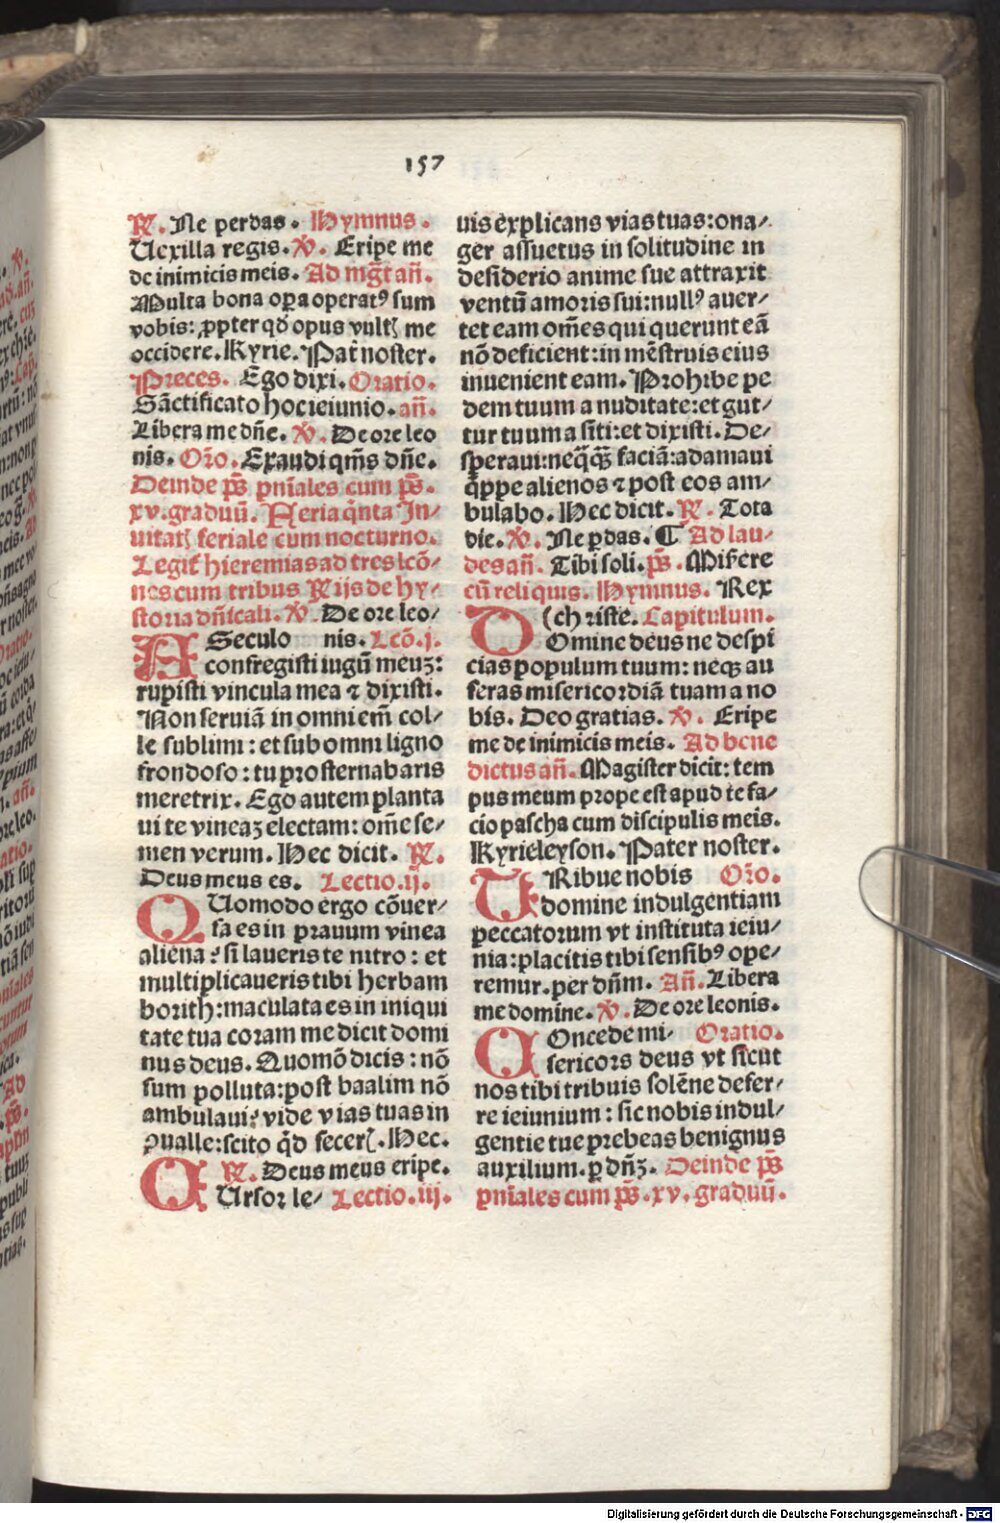 157
℟. Ne perdas. Hymnus.
Uexilla regis. ℣. Eripe me
de inimicis meis. Ad mg̃t añ.
Multa bona oꝑa operatꝰ sum
vobis: ꝓpter qd̃ opus vultꝭ me
occidere. Kyrie. Pat̃ noster.
Preces. Ego dixi. Oratio.
Sãctificato hoc ieiunio. añ.
Libera me dñe. ℣. De ore leo
nis. Orõ. Exaudi qm̃s dñe.
Deinde p̃s pñiales cum p̃s.
xv. graduũ. Feria q̃nta In/
uitatꝭ feriale cum nocturno.
Legit̃ hieremias ad tres lcõ/
nes cum tribus Rijs de hy/
storia dñicali. ℣. De ore leo/
A Seculo nis. Lcõ. j.
confregisti iugũ meuʒ:
rupisti vincula mea ⁊ dixisti.
Non seruiã in omni em̃ col/
le sublimi: et sub omni ligno
frondoso: tu prosternabaris
meretrix. Ego autem planta
ui te vineaʒ electam: om̃e se/
men verum. Hec dicit. ℟.
Deus meus es. Lectio. ij.
QUomodo ergo cõuer/
sa es in prauum vinea
aliena? si laueris te nitro: et
multiplicaueris tibi herbam
borith: maculata es in iniqui
tate tua coram me dicit domi
nus deus. Quomõ dicis: nõ
sum polluta: post baalim nõ
ambulaui? vide vias tuas in
ꝯualle: scito qd̃ fecerꝭ. Hec.
℟. Deus meus eripe.
CUrsor le/ Lectio. iij.
uis explicans vias tuas: ona/
ger assuetus in solitudine in
desiderio anime sue attraxit
ventũ amoris sui: nullꝰ auer/
tet eam om̃es qui querunt eã
nõ deficient: in mẽstruis eius
inuenient eam. Prohibe pe
dem tuum a nuditate: et gut/
tur tuum a siti: et dixisti. De/
speraui: neq̃q̃ʒ faciã: adamaui
q̃ppe alienos ⁊ post eos am/
bulabo. Hec dicit. ℟. Tota
die. ℣. Ne ꝑdas. ¶ Ad lau/
des añ. Tibi soli. p̃s. Miſere
cũ reliquis. Hymnus. Rex
(christe. Capitulum.
DOmine deus ne despi
cias populum tuum: neqʒ au
feras misericordiã tuam a no
bis. Deo gratias. ℣. Eripe
me de inimicis meis. Ad bene
dictus añ. Magister dicit: tem
pus meum prope est apud te fa/
cio pascha cum discipulis meis.
Kyrieleyson. Pater noster.
TRibue nobis Orõ.
domine indulgentiam
peccatorum vt instituta ieiu/
nia: placitis tibi sensibꝰ ope/
remur. per dñm. Añ. Libera
me domine. ℣. De ore leonis.
COncede mi/ Oratio.
sericors deus vt sicut
nos tibi tribuis solẽne defer/
re ieiunium: sic nobis indul/
gentie tue prebeas benignus
auxilium. ꝑ dñʒ. Deinde p̃s
pñiales cum p̃s. xv. graduũ.
Digitalisierung gefördert durch die Deutsche Forschungsgemeinschaft - DFG